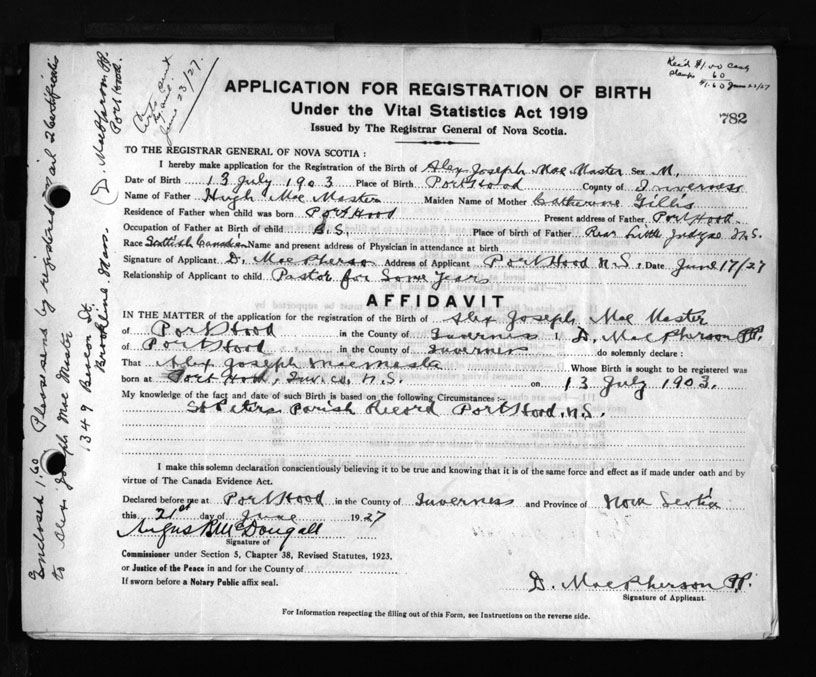 Enclosed 1.60 Please send by registered mail 2 Certificates
to Alex Joseph Mac Master
1349 Beacon St.
Brookline Mass.
D. MacPherson PP.
Port Hood.
Certs sent
June 23/27.
Rec'd $1.00 Cash
Stamps 60
$1.60 June 22/27
APPLICATION FOR REGISTRATION OF BIRTH
Under the Vital Statistics Act 1919
Issued by The Registrar General of Nova Scotia.
782
TO THE REGISTRAR GENERAL OF NOVA SCOTIA :
I hereby make application for the Registration of the Birth of Alex Joseph Mac Master Sex M.
Date of Birth 13 July 1903 Place of Birth Port Hood County of Inverness
Name of Father Hugh Mac Master Maiden Name of Mother Catherine Gillis
Residence of Father when child was born Port Hood Present address of Father Port Hood
Occupation of Father at Birth of child B.S. Place of birth of Father Rear Little Judque N.S.
Race Scottish Canadian Name and present address of Physician in attendance at birth
Signature of Applicant D. MacPherson Address of Applicant Port Hood N.S. Date June 17/27
Relationship of Applicant to child Pastor for Some Years
AFFIDAVIT
IN THE MATTER of the application for the registration of the Birth of Alex Joseph Mac Master
of Port Hood in the County of Inverness I D. MacPherson PP.
of Port Hood in the County of Inverness do solemnly declare :
That Alex Joseph Macmaster Whose Birth is sought to be registered was
born at Port Hood, Inv. co. N.S. on 13 July 1903.
My knowledge of the fact and date of such Birth is based on the following Circumstances :-
St Peters Parish Record Port Hood N.S.
I make this solemn declaration conscientiously believing it to be true and knowing that it is of the same force and effect as if made under oath and by
virtue of The Canada Evidence Act.
Declared before me at Port Hood in the County of Inverness and Province of Nova Scotia
this 21st day of June 1927
Angus R McDougall
Signature of
Commissioner under Section 5, Chapter 38, Revised Statutes, 1923.
or Justice of the Peace in and for the County of
If sworn before a Notary Public affix seal.
D. MacPherson PP.
Signature of Applicant.
For Information respecting the filling out of this Form, see Instructions on the reverse side.